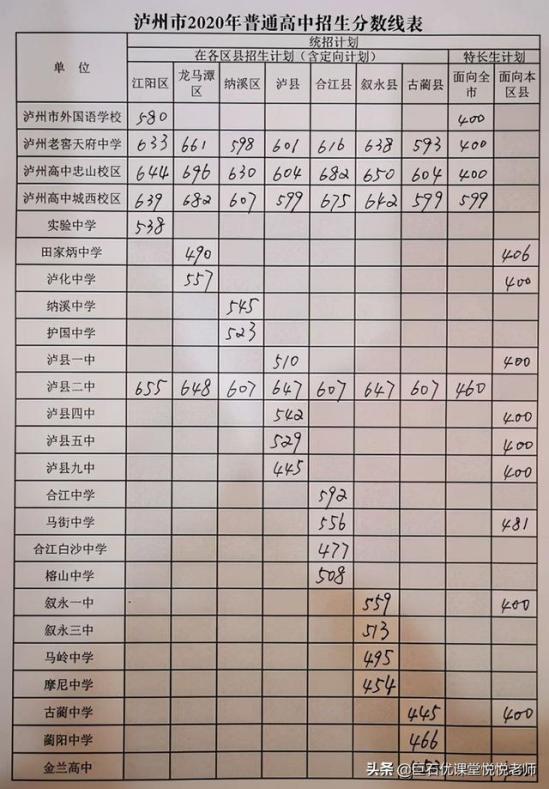 泸州市2020年普通高中招生分数线表
单 位 统招计划
在各区县招生计划（含定向计划） 特长生计划
江阳区 龙马潭区 纳溪区 泸县 合江县 叙永县 古蔺县 面向全市 面向本区县
泸州市外国语学校 580 400
泸州老窖天府中学 633 661 598 601 616 638 593 400
泸州高中忠山校区 644 696 630 604 682 650 604 400
泸州高中城西校区 639 682 607 599 675 642 599 599
实验中学 538
田家炳中学 490 406
泸化中学 557 400
纳溪中学 545
护国中学 523
泸县一中 510 400
泸县二中 655 648 607 647 607 647 607 460
泸县四中 542 400
泸县五中 529 400
泸县九中 445 400
合江中学 592
马街中学 556 481
合江白沙中学 477
榕山中学 508
叙永一中 559 400
叙永三中 513
马岭中学 495
摩尼中学 454
古蔺中学 445 400
蔺阳中学 466
金兰高中
头条 @巨石优课堂悦悦老师